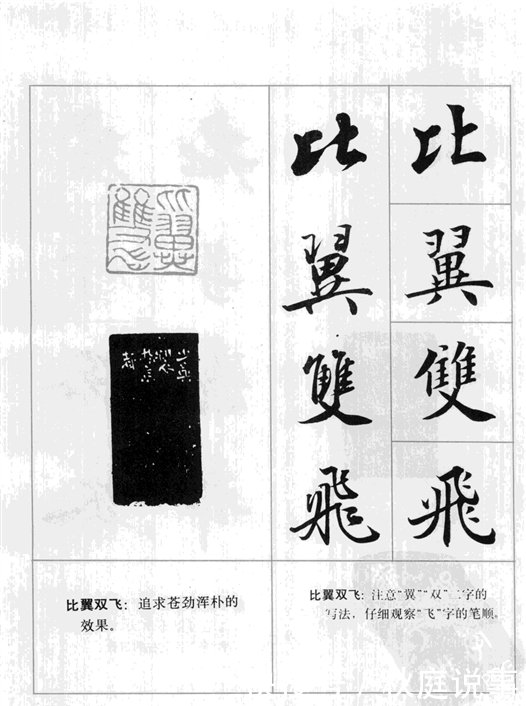 比翼雙飛
比翼雙飛
比翼双飞：追求苍劲浑朴的
效果。
比翼双飞：注意“翼”“双”二字的
写法，仔细观察“飞”字的笔顺。
秋庭说事